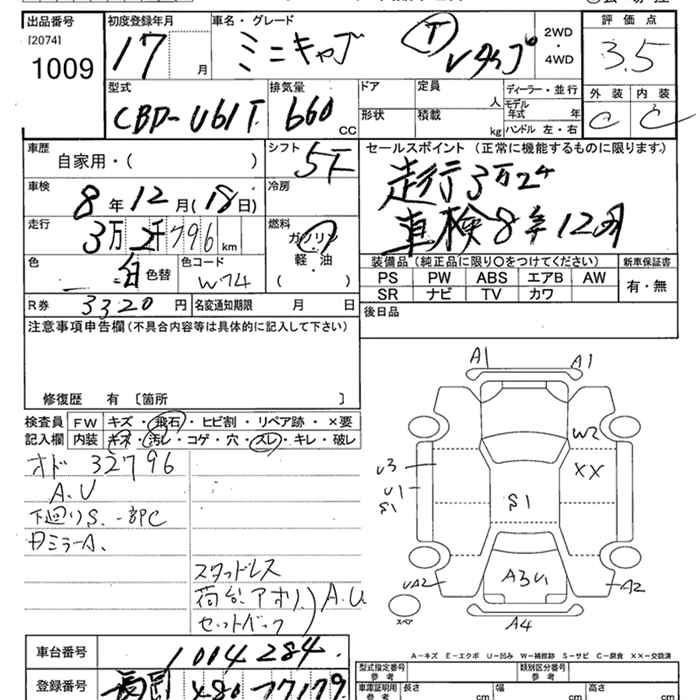 出品番号
[2074]
1009
初度登録年月
17
月
車名・グレード
ミニキャブ
T
Vタップ
2WD
・
4WD
評価点
3.5
型式
CBD-U61T
排気量
660
CC
ドア
定員
人
形状
積載
kg
ディーラー・並行
モデル年式 年
ハンドル 左・右
外装
内装
C
C
車歴
自家用・( )
シフト
5F
車検
8年12月(18日)
冷房
走行
3万2千796km
燃料
ガソリン
軽・油
( )
色
白
色替
色コード
W74
R券
3320円
名変通知期限 月 日
セールスポイント (正常に機能するものに限ります。)
走行3万2千
車検8年12月
装備品 (純正品に限り○をつけてください)
新車保証書
PS PW ABS エアB AW
SR ナビ TV カワ
有・無
後日品
注意事項申告欄 (不具合内容等は具体的に記入して下さい)
修復歴 有 〔箇所 〕
検査員
記入欄
FW キズ・飛石・ヒビ割・リペア跡・×要
内装 キズ・汚レ・コゲ・穴・スレ・キレ・破レ
オド 32796
A.U
下廻りS. 一部PC
Dミラー A.
スタッドレス
荷台アオリ
セットバック
A.U
A1
A1
W2
U3
XX
U1
S1
S1
UA2
A3U1
A2
スペア
A4
A-キズ E-エクボ U-凹み W-補修跡 S-サビ C-腐食 XX-交換済
車台番号
1004284
登録番号
長岡 480 77179
型式指定番号
参考
類別区分番号
参考
車庫証明用
参考
長さ cm
幅 cm
高さ cm